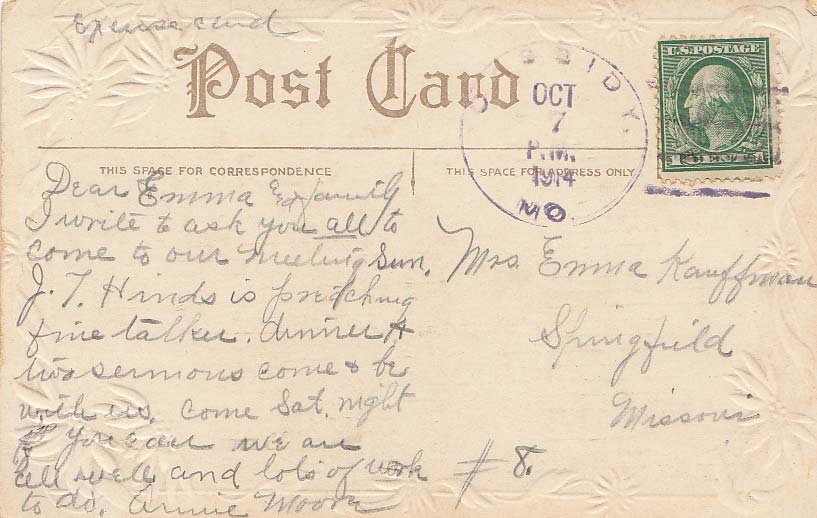 Excuse card
Post Card
U.S. POSTAGE
CASSIDY.
OCT
7
P.M.
1914
MO.
THIS SPACE FOR CORRESPONDENCE
THIS SPACE FOR ADDRESS ONLY
Dear Emma & family
I write to ask you all to
come to our meeting Sun.
J. T. Hinds is preaching
fine talker. dinner &
two sermons come & be
with us. come Sat. night
if you can we are
all well and lots of work
to do. Annie Moore
Mrs. Emma Kauffman
Springfield
Missouri
# 8.